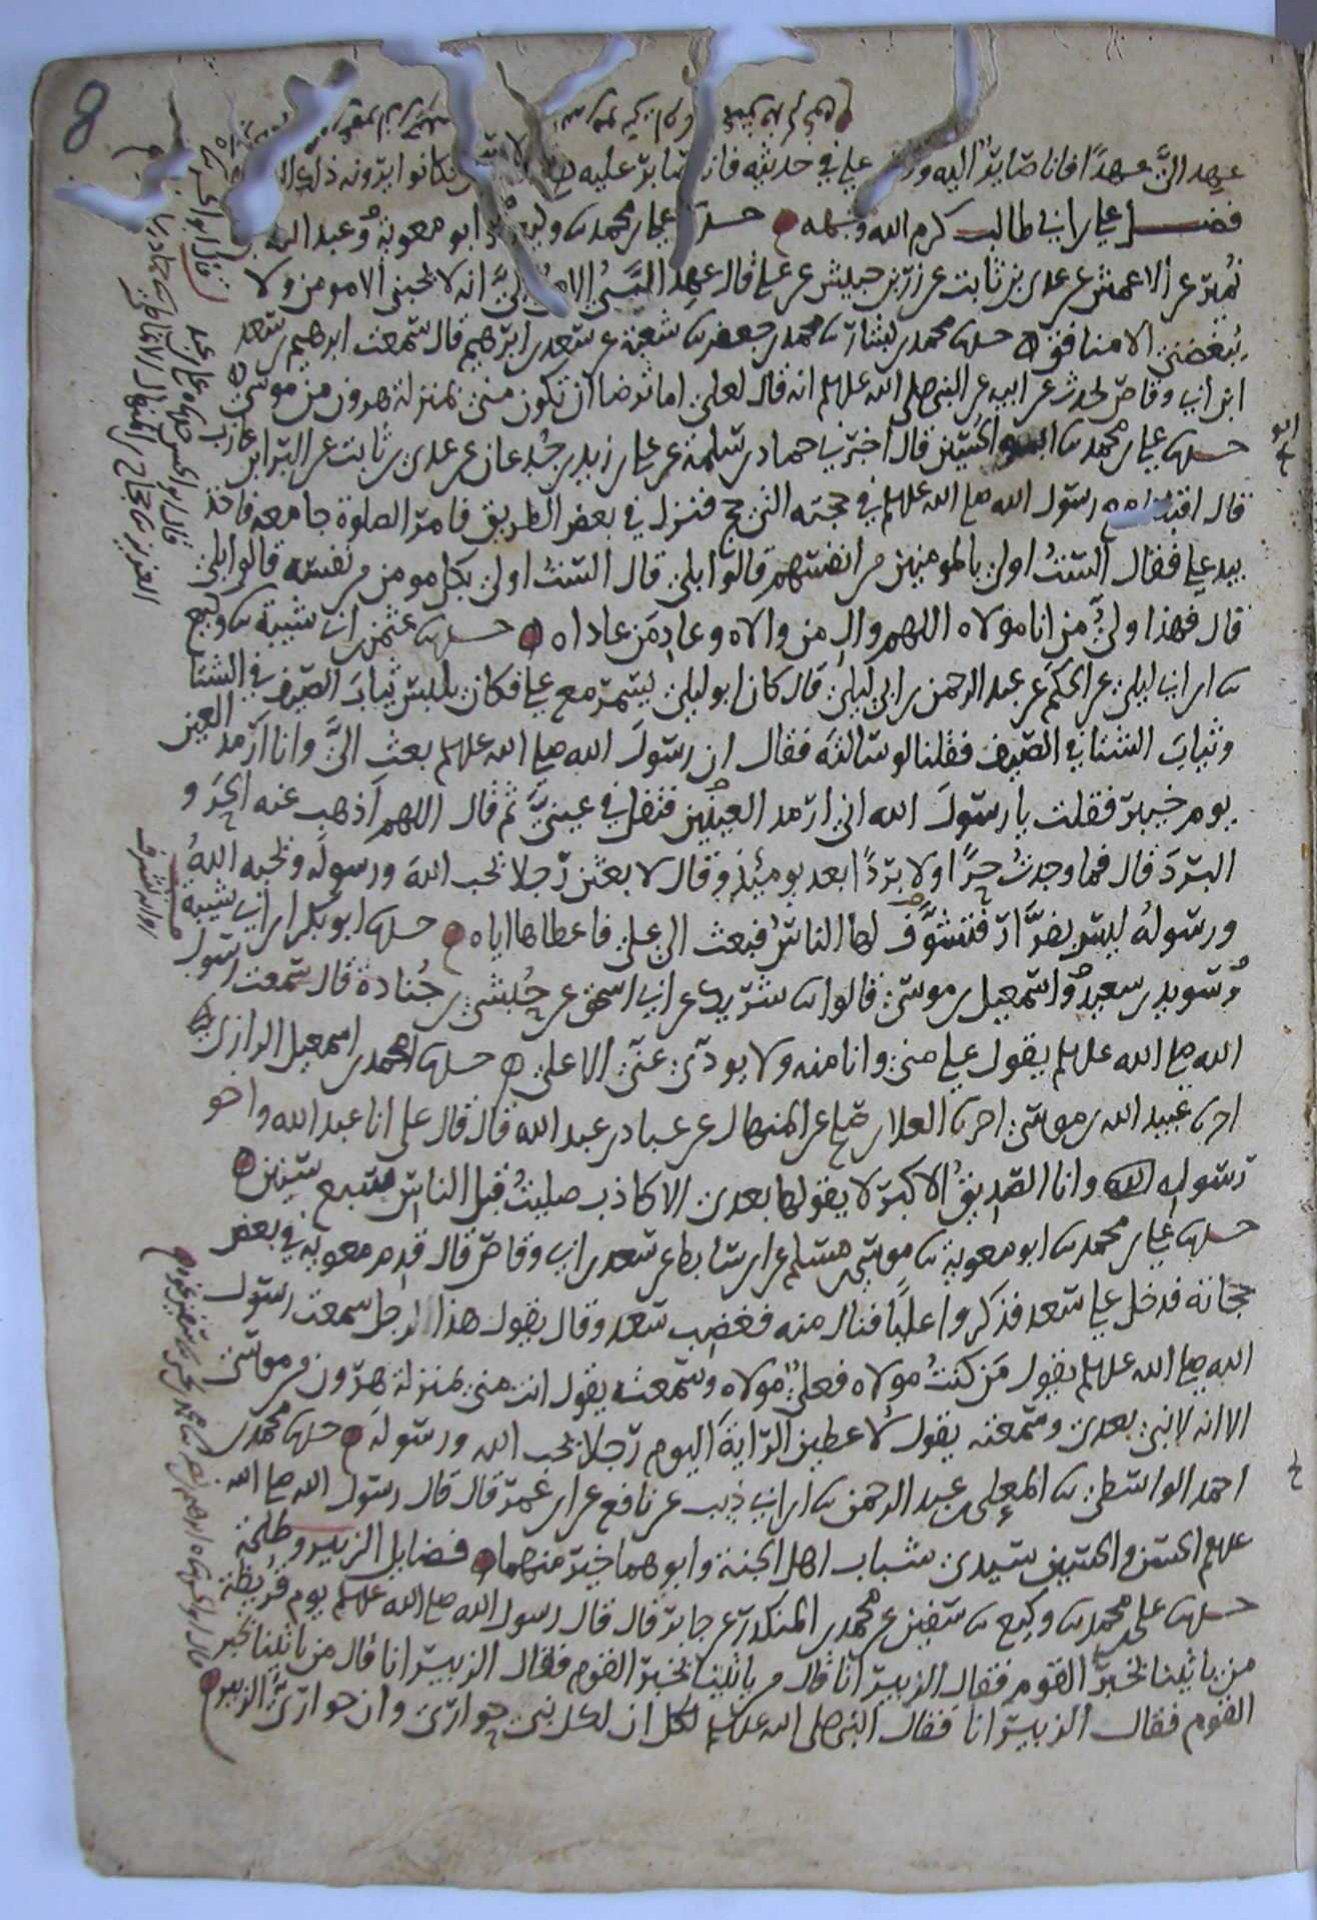 8
عهد اليَّ عهدًا فانا صائر اليه وقال علي في حديثه فانا صابر عليه قال قيس فكانوا يرونه ذلك
فضل علي بن ابي طالب كرم الله وجهه حدثنا علي بن محمد ثنا وكيع وابو معوية وعبد الله بن
نُمير عن الاعمش عن عدي بن ثابت عن زر بن حبيش عن علي قال عهد النبيُّ الاميُّ اليَّ انه لا يحبني الا مومن ولا
يبغضني الا منافق حدثنا محمد بن بشار ثنا محمد بن جعفر ثنا شعبة عن سعد بن ابرهيم قال سمعت ابرهيم بن سعد
ابن ابي وقاص يحدث عن ابيه عن النبي صلى الله عليه وسلم انه قال لعلي اما ترضا ان تكون مني بمنزلة هرون من موسى
حدثنا علي بن محمد ثنا ابو الحسين قال اخبرني حماد بن سلمة عن علي بن زيد بن جدعان عن عدي بن ثابت عن البرا بن عازب
قال اقبلنا مع رسول الله صلى الله عليه وسلم في حجته التي حج فنزل في بعض الطريق فامر الصلوة جامعة فاخذ
بيد علي فقال الستُ اولى بالمومنين من انفسهم قالوا بلى قال الستُ اولى بكل مومن من نفسه قالوا بلى
قال فهذا وليُّ من انا مولاه اللهم وال من والاه وعادِ مَن عاداه حدثنا عثمن بن ابي شيبة ثنا وكيع
ثنا ابن ابي ليلى عن الحكم عن عبد الرحمن بن ابي ليلى قال كان ابو ليلى يسمر مع علي فكان يلبس ثيابَ الصيف في الشتا
وثيابَ الشتا في الصيف فقلنا لو سالته فقال ان رسولَ الله صلى الله عليه وسلم بعث اليَّ وانا ارمد العين
يوم خيبر فقلت يا رسولَ الله اني ارمد العين فتفل في عينيَّ ثم قال اللهم اَذهب عنه الحرَ و
البردَ قال فما وجدتُ حرًا ولا بردًا بعد يومئذٍ وقال لابعثن رجلا يحب اللهَ ورسولَه ويحبه اللهُ
ورسولُه ليس بفرَّار فتشوَّف لها الناسُ فبعث الى علي فاعطاها اياه حدثنا ابو بكر بن ابي شيبة
وسويد بن سعيد واسمعيل بن موسى قالوا ثنا شريك عن ابي اسحق عن حُبشي بن جُنادة قال سمعت رسول
الله صلى الله عليه وسلم يقول علي مني وانا منه ولا يودي عني الا علي حدثنا محمد بن اسمعيل الرازي
ثنا عبيد الله بن موسى اخبرنا العلا بن صالح عن المنهال عن عباد بن عبد الله قال قال علي انا عبد الله واخو
رسوله وانا الصديقُ الاكبر لا يقولها بعدي الا كاذب صليتُ قبل الناس سبع سنين
حدثنا علي بن محمد ثنا ابو معوية ثنا موسى بن مسلم عن ابن سابط عن سعد بن ابي وقاص قال قدم معوية في بعض
حجاته فدخل عليه سعد فذكروا عليًا فنال منه فغضب سعد وقال يقول هذا لرجل سمعت رسول
الله صلى الله عليه وسلم يقول مَن كنتُ مولاه فعليٌ مولاه وسمعته يقول انت مني بمنزلة هرون من موسى
الا انه لا نبي بعدي وسمعته يقول لاعطين الرايةَ اليوم رجلا يحب الله ورسولَه حدثنا محمد بن
احمد الواسطي ثنا المعلى بن عبد الرحمن ثنا ابن ابي ذيب عن نافع عن ابن عمر قال قال رسول الله صلى الله
عليه وسلم الحسن والحسين سيدي شباب اهل الجنة وابوهما خير منهما فضايل الزبير وطلحة
حدثنا علي بن محمد ثنا وكيع ثنا سفين عن محمد بن المنكدر عن جابر قال قال رسول الله صلى الله عليه وسلم يوم قُريظة
من ياتينا بخبر القوم فقال الزبير انا قال من ياتينا بخبر القوم فقال الزبير انا قال من ياتينا بخبر
القوم فقال الزبير انا فقال النبي صلى الله عليه وسلم ان لكل نبي حواريَ وان حواريَّ الزبير